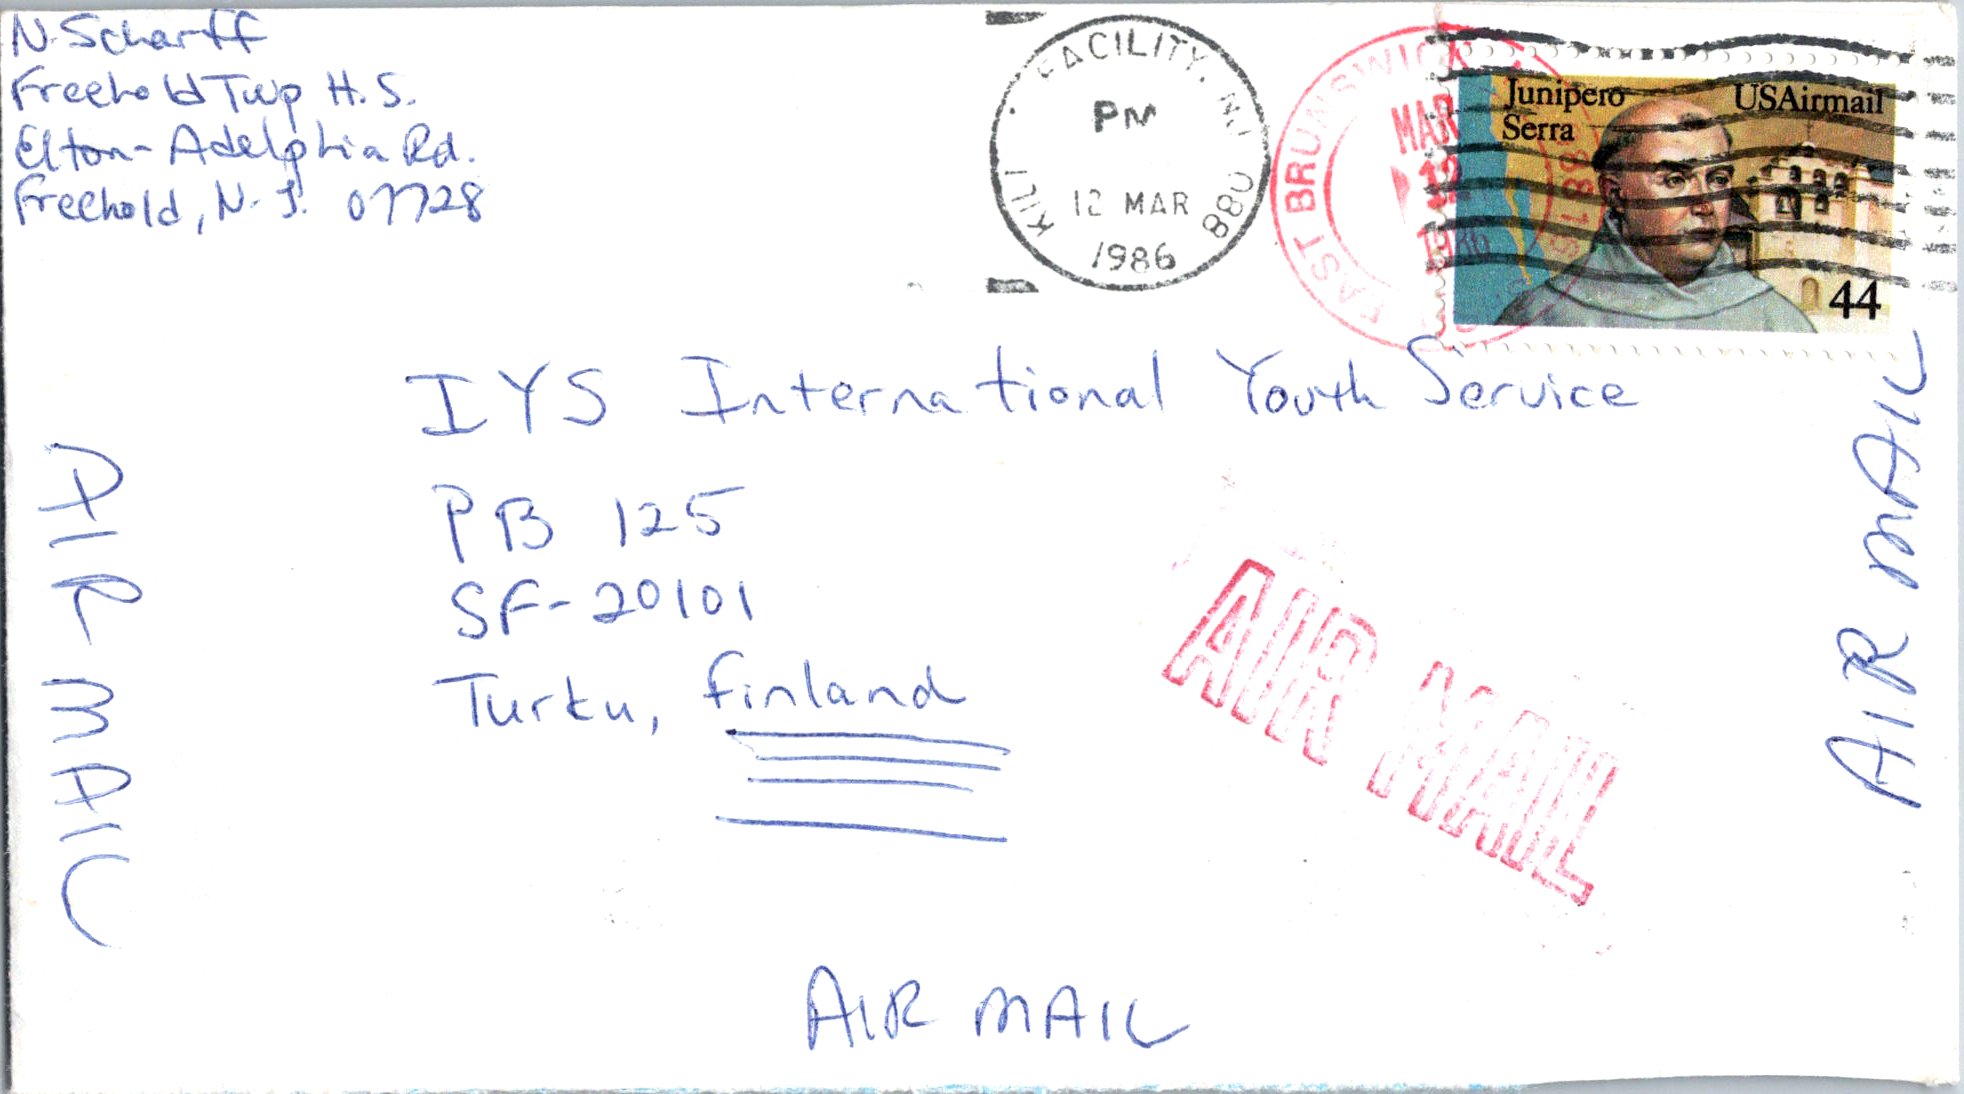 N. Scharff
Freehold Twp H.S.
Elton-Adelphia Rd.
Freehold, N.J. 07728
FACILITY, NJ 088
PM
12 MAR
1986
KIL
EAST BRUNSWICK
MAR
12
1986
08816
Junipero
Serra
USAirmail
44
IYS International Youth Service
PB 125
SF-20101
Turku, Finland
AIR MAIL
AIR MAIL
AIR MAIL
AIR MAIL